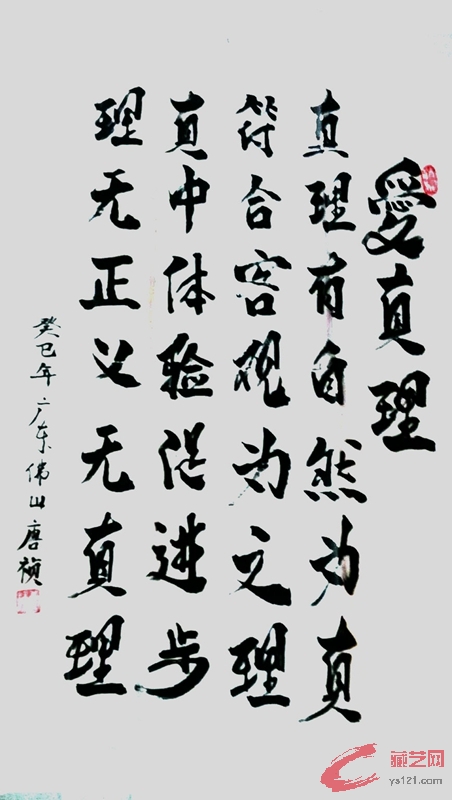 愛真理
真理有自然为真
符合客观为之理
真中体验促进步
理无正义无真理
癸巳年广东佛山唐祯
藏艺网
ys121.com